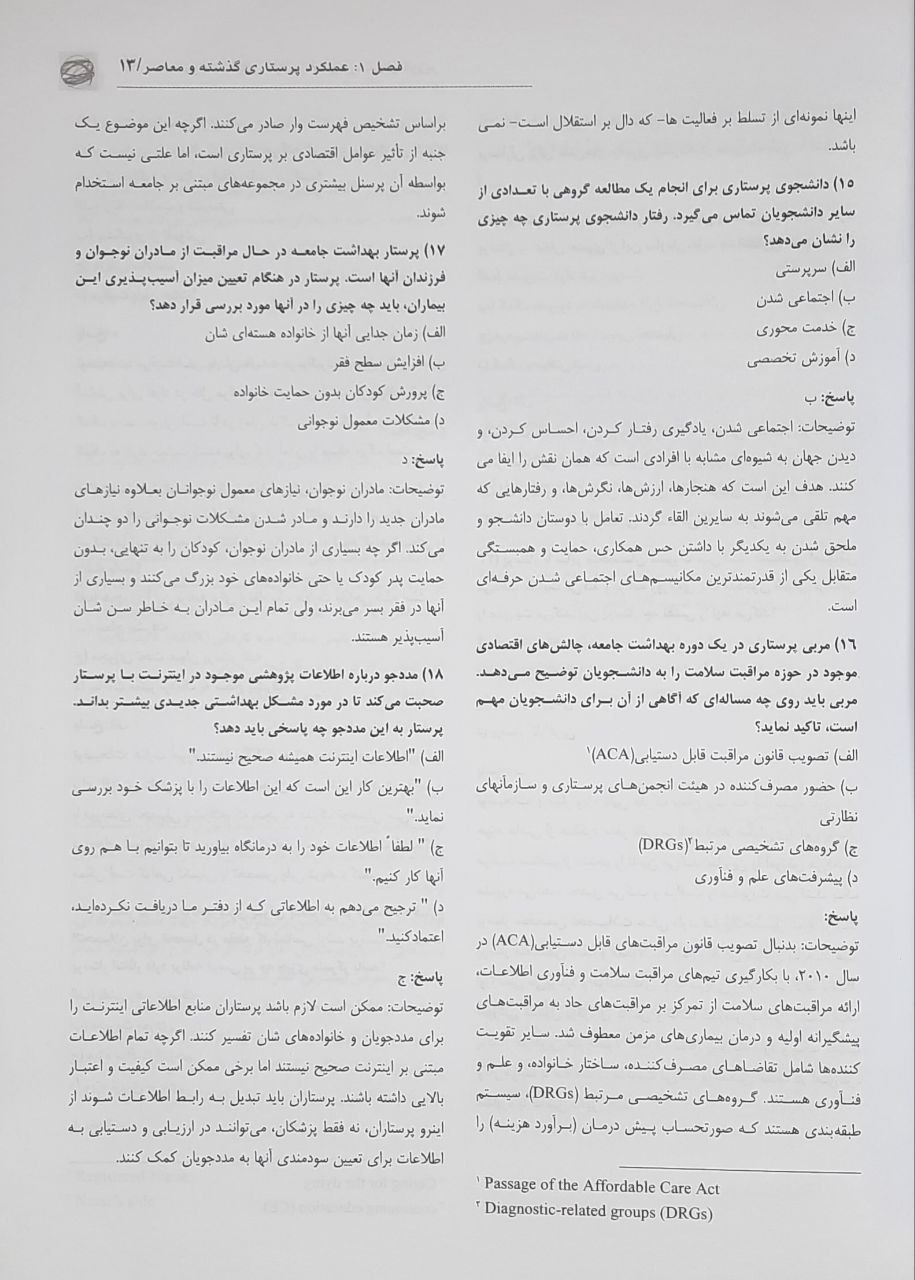 فصل ۱: عملکرد پرستاری گذشته و معاصر/۱۳
اینها نمونه‌ای از تسلط بر فعالیت ها- که دال بر استقلال است- نمی
باشد.
۱۵) دانشجوی پرستاری برای انجام یک مطالعه گروهی با تعدادی از
سایر دانشجویان تماس می‌گیرد. رفتار دانشجوی پرستاری چه چیزی
را نشان می‌دهد؟
الف) سرپرستی
ب) اجتماعی شدن
ج) خدمت محوری
د) آموزش تخصصی
پاسخ: ب
توضیحات: اجتماعی شدن، یادگیری رفتار کردن، احساس کردن، و
دیدن جهان به شیوه‌ای مشابه با افرادی است که همان نقش را ایفا می
کنند. هدف این است که هنجارها، ارزش‌ها، نگرش‌ها، و رفتارهایی که
مهم تلقی می‌شوند به سایرین القاء گردند. تعامل با دوستان دانشجو و
ملحق شدن به یکدیگر با داشتن حس همکاری، حمایت و همبستگی
متقابل یکی از قدرتمندترین مکانیسم‌های اجتماعی شدن حرفه‌ای
است.
۱۶) مربی پرستاری در یک دوره بهداشت جامعه، چالش‌های اقتصادی
موجود در حوزه مراقبت سلامت را به دانشجویان توضیح می‌دهد.
مربی باید روی چه مساله‌ای که آگاهی از آن برای دانشجویان مهم
است، تاکید نماید؟
الف) تصویب قانون مراقبت قابل دستیابی(ACA)۱
ب) حضور مصرف‌کننده در هیئت انجمن‌های پرستاری و سازمآنهای
نظارتی
ج) گروه‌های تشخیصی مرتبط۲(DRGs)
د) پیشرفت‌های علم و فنآوری
پاسخ:
توضیحات: بدنبال تصویب قانون مراقبت‌های قابل دستیابی(ACA) در
سال ۲۰۱۰، با بکارگیری تیم‌های مراقبت سلامت و فنآوری اطلاعات،
ارائه مراقبت‌های سلامت از تمرکز بر مراقبت‌های حاد به مراقبت‌های
پیشگیرانه اولیه و درمان بیماری‌های مزمن معطوف شد. سایر تقویت
کننده‌ها شامل تقاضاهای مصرف‌کننده، ساختار خانواده، و علم و
فنآوری هستند. گروه‌های تشخیصی مرتبط (DRGs)، سیستم
طبقه‌بندی هستند که صورتحساب پیش درمان (برآورد هزینه) را
۱ Passage of the Affordable Care Act
۲ Diagnostic-related groups (DRGs)
براساس تشخیص فهرست وار صادر می‌کنند. اگرچه این موضوع یک
جنبه از تأثیر عوامل اقتصادی بر پرستاری است، اما علتی نیست که
بواسطه آن پرسنل بیشتری در مجموعه‌های مبتنی بر جامعه استخدام
شوند.
۱۷) پرستار بهداشت جامعه در حال مراقبت از مادران نوجوان و
فرزندان آنها است. پرستار در هنگام تعیین میزان آسیب‌پذیری این
بیماران، باید چه چیزی را در آنها مورد بررسی قرار دهد؟
الف) زمان جدایی آنها از خانواده هسته‌ای شان
ب) افزایش سطح فقر
ج) پرورش کودکان بدون حمایت خانواده
د) مشکلات معمول نوجوانی
پاسخ: د
توضیحات: مادران نوجوان، نیازهای معمول نوجوانان بعلاوه نیازهای
مادران جدید را دارند و مادر شدن مشکلات نوجوانی را دو چندان
می‌کند. اگر چه بسیاری از مادران نوجوان، کودکان را به تنهایی، بدون
حمایت پدر کودک یا حتی خانواده‌های خود بزرگ می‌کنند و بسیاری از
آنها در فقر بسر می‌برند، ولی تمام این مادران به خاطر سن شان
آسیب‌پذیر هستند.
۱۸) مددجو درباره اطلاعات پژوهشی موجود در اینترنت با پرستار
صحبت می‌کند تا در مورد مشکل بهداشتی جدیدی بیشتر بداند.
پرستار به این مددجو چه پاسخی باید دهد؟
الف) "اطلاعات اینترنت همیشه صحیح نیستند."
ب) "بهترین کار این است که این اطلاعات را با پزشک خود بررسی
نماید."
ج) " لطفاً اطلاعات خود را به درمانگاه بیاورید تا بتوانیم با هم روی
آنها کار کنیم."
د) " ترجیح می‌دهم به اطلاعاتی که از دفتر ما دریافت نکرده‌اید،
اعتمادکنید."
پاسخ: ج
توضیحات: ممکن است لازم باشد پرستاران منابع اطلاعاتی اینترنت را
برای مددجویان و خانواده‌های شان تفسیر کنند. اگرچه تمام اطلاعات
مبتنی بر اینترنت صحیح نیستند اما برخی ممکن است کیفیت و اعتبار
بالایی داشته باشند. پرستاران باید تبدیل به رابط اطلاعات شوند از
اینرو پرستاران، نه فقط پزشکان، می‌توانند در ارزیابی و دستیابی به
اطلاعات برای تعیین سودمندی آنها به مددجویان کمک کنند.